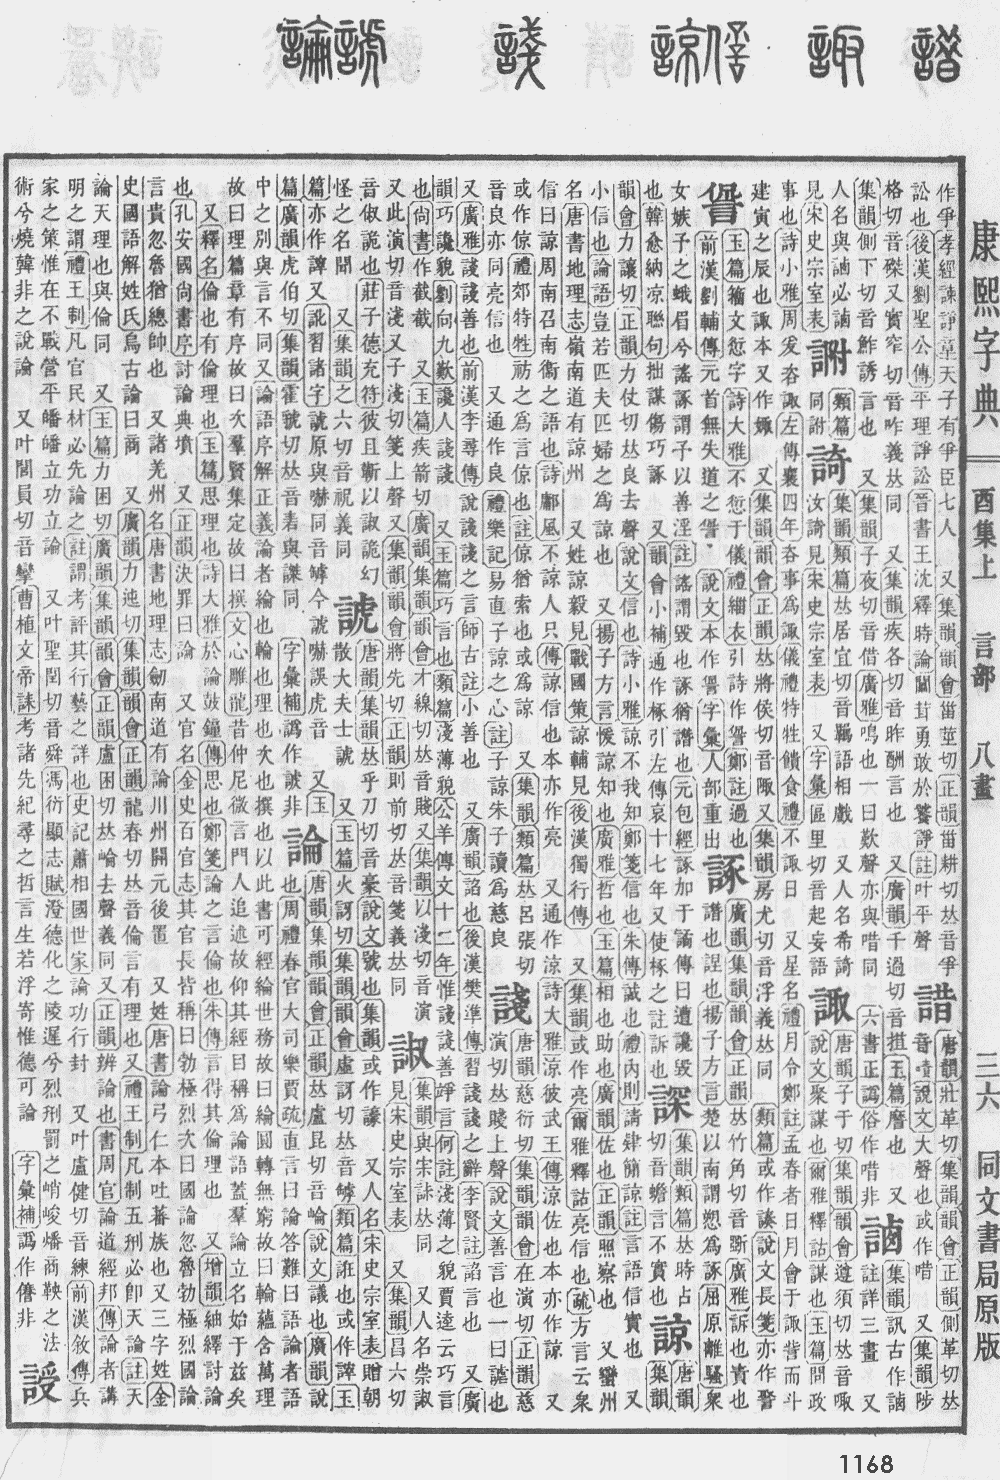 諎 諏 諒 諓 諕 論
康熙字典 酉集上 言部 八畫 三六 同文書局原版
作爭孝經諫諍章天子有爭臣七人 又集韻韻會甾莖切正韻甾耕切𠀤音爭
訟也後漢劉聖公傳平理諍訟晉書王沈釋時論闒茸勇敢於饕諍註叶平聲
諎
唐韻壯革切集韻韻會正韻側革切𠀤
音嘖說文大聲也或作唶 又集韻陟
格切音磔又實窄切音咋義𠀤同 又集韻疾各切音昨酬言也 又廣韻千過切音剉玉篇譍也 又
集韻側下切音鮓誘言也 又集韻子夜切音借廣雅鳴也一曰歎聲亦與唶同 六書正譌俗作唶非
䛿
集韻訊古作䛿
註詳三畫 又
人名與䛿必䛿
見宋史宗室表
䛹
類篇
同詂
諅
集韻類篇𠀤居宜切音羈語相戲 又人名希諅
汝諅見宋史宗室表 又字彙區里切音起妄語
諏
唐韻子于切集韻韻會遵須切𠀤音娵
說文聚謀也爾雅釋詁謀也玉篇問政
事也詩小雅周爰咨諏左傳襄四年咨事爲諏儀禮特牲饋食禮不諏日 又星名禮月令鄭註孟春者日月會于諏訾而斗
建寅之辰也諏本又作娵 又集韻韻會正韻𠀤將侯切音陬又集韻房尤切音浮義𠀤同 類篇或作諑說文長箋亦作詧
諐
玉篇籀文愆字詩大雅不愆于儀禮緇衣引詩作諐鄭註過也
前漢劉輔傳元首無失道之諐 說文本作愆字彙人部重出
諑
廣韻集韻韻會正韻𠀤竹角切音斲廣雅訴也責也
譖也䛩也揚子方言楚以南謂愬爲諑屈原離騷衆
女嫉予之蛾眉兮謠諑謂予以善淫註謠謂毀也諑猶譖也元包經諑加于譎傳曰遭讒毀
也韓愈納凉聯句拙謀傷巧諑 又韻會小補通作椓引左傳哀十七年又使椓之註訴也
𧩝
集韻類篇𠀤時占
切音蟾言不實也
諒
唐韻
集韻
韻會力讓切正韻力仗切𠀤良去聲說文信也詩小雅諒不我知鄭箋信也朱傳誠也禮內則請肄簡諒註言語信實也 又
小信也論語豈若匹夫匹婦之爲諒也 又揚子方言㥜諒知也廣雅哲也玉篇相也助也廣韻佐也正韻照察也 又蠻州
名唐書地理志嶺南道有諒州 又姓諒毅見戰國策諒輔見後漢獨行傳 又集韻或作亮爾雅釋詁亮信也疏方言云衆
信曰諒周南召南衞之語也詩鄘風不諒人只傳諒信也本亦作亮 又通作涼詩大雅涼彼武王傳涼佐也本亦作諒 又
或作倞禮郊特牲祊之爲言倞也註倞猶索也或爲諒 又集韻類篇𠀤呂張切
音良亦同亮信也 又通作良禮樂記易直子諒之心註子諒朱子讀爲慈良
諓
唐韻慈衍切集韻韻會在演切正韻慈
演切𠀤賤上聲說文善言也一曰謔也
又廣雅諓諓善也前漢李尋傳說諓諓之言師古註小善也 又廣韻諂也後漢樊準傳習諓諓之辭李賢註諂言也 又廣
韻巧讒貌劉向九歎讒人諓諓 又玉篇巧言也類篇淺薄貌公羊傳文十二年惟諓諓善竫言何註淺薄之貌賈逵云巧言
也尙書作截截 又玉篇疾箭切廣韻集韻韻會才線切𠀤音賤又集韻以淺切音演
又此演切音淺又子淺切箋上聲又集韻韻會將先切正韻則前切𠀤音箋義𠀤同
諔
集韻與宋誅𠀤同 又人名崇諔
見宋史宗室表 又集韻昌六切
音俶詭也莊子德充符彼且蘄以諔詭幻
怪之名聞 又集韻之六切音祝義同
諕
唐韻集韻𠀤乎刀切音豪說文號也集韻或作譹 又人名宋史宗室表贈朝
散大夫士諕 又玉篇火訝切集韻韻會虛訝切𠀤音罅類篇誑也或作謼玉
篇亦作謼又訛習諸字諕原與嚇同音罅今諕嚇誤虎音 又玉
篇廣韻虎伯切集韻霍虢切𠀤音砉與謋同 字彙補譌作諕非
論
唐韻集韻韻會正韻𠀤盧昆切音崘說文議也廣韻說
也周禮春官大司樂賈疏直言曰論答難曰語論者語
中之別與言不同又論語序解正義論者綸也輪也理也次也撰也以此書可經綸世務故曰綸圓轉無窮故曰輪蘊含萬理
故曰理篇章有序故曰次羣賢集定故曰撰文心雕龍昔仲尼微言門人追述故仰其經目稱爲論語蓋羣論立名始于兹矣
又釋名倫也有倫理也玉篇思理也詩大雅於論鼓鐘傳思也鄭箋論之言倫也朱傳言得其倫理也 又增韻紬繹討論
也孔安國尙書序討論典墳 又正韻決罪曰論 又官名金史百官志其官長皆稱曰勃極烈次曰國論忽魯勃極烈國論
言貴忽魯猶總帥也 又諸羌州名唐書地理志劒南道有論川州開元後置 又姓唐書論弓仁本吐蕃族也又三字姓金
史國語解姓氏烏古論曰商 又廣韻力迍切集韻韻會正韻龍春切𠀤音倫言有理也又禮王制凡制五刑必卽天論註天
論天理也與倫同 又玉篇力困切廣韻集韻韻會正韻盧困切𠀤崘去聲義同又正韻辨論也書周官論道經邦傳論者講
明之謂禮王制凡官民材必先論之註謂考評其行藝之詳也史記蕭相國世家論功行封 又叶盧健切音練前漢敘傳兵
家之策惟在不戰營平皤皤立功立論 又叶聖閏切音舜馮衍顯志賦澄德化之陵遲兮烈刑罰之峭峻燔商鞅之法
術兮燒韓非之說論 又叶閭員切音攣曹植文帝誄考諸先紀尋之哲言生若浮寄惟德可論 字彙補譌作僭非
1168